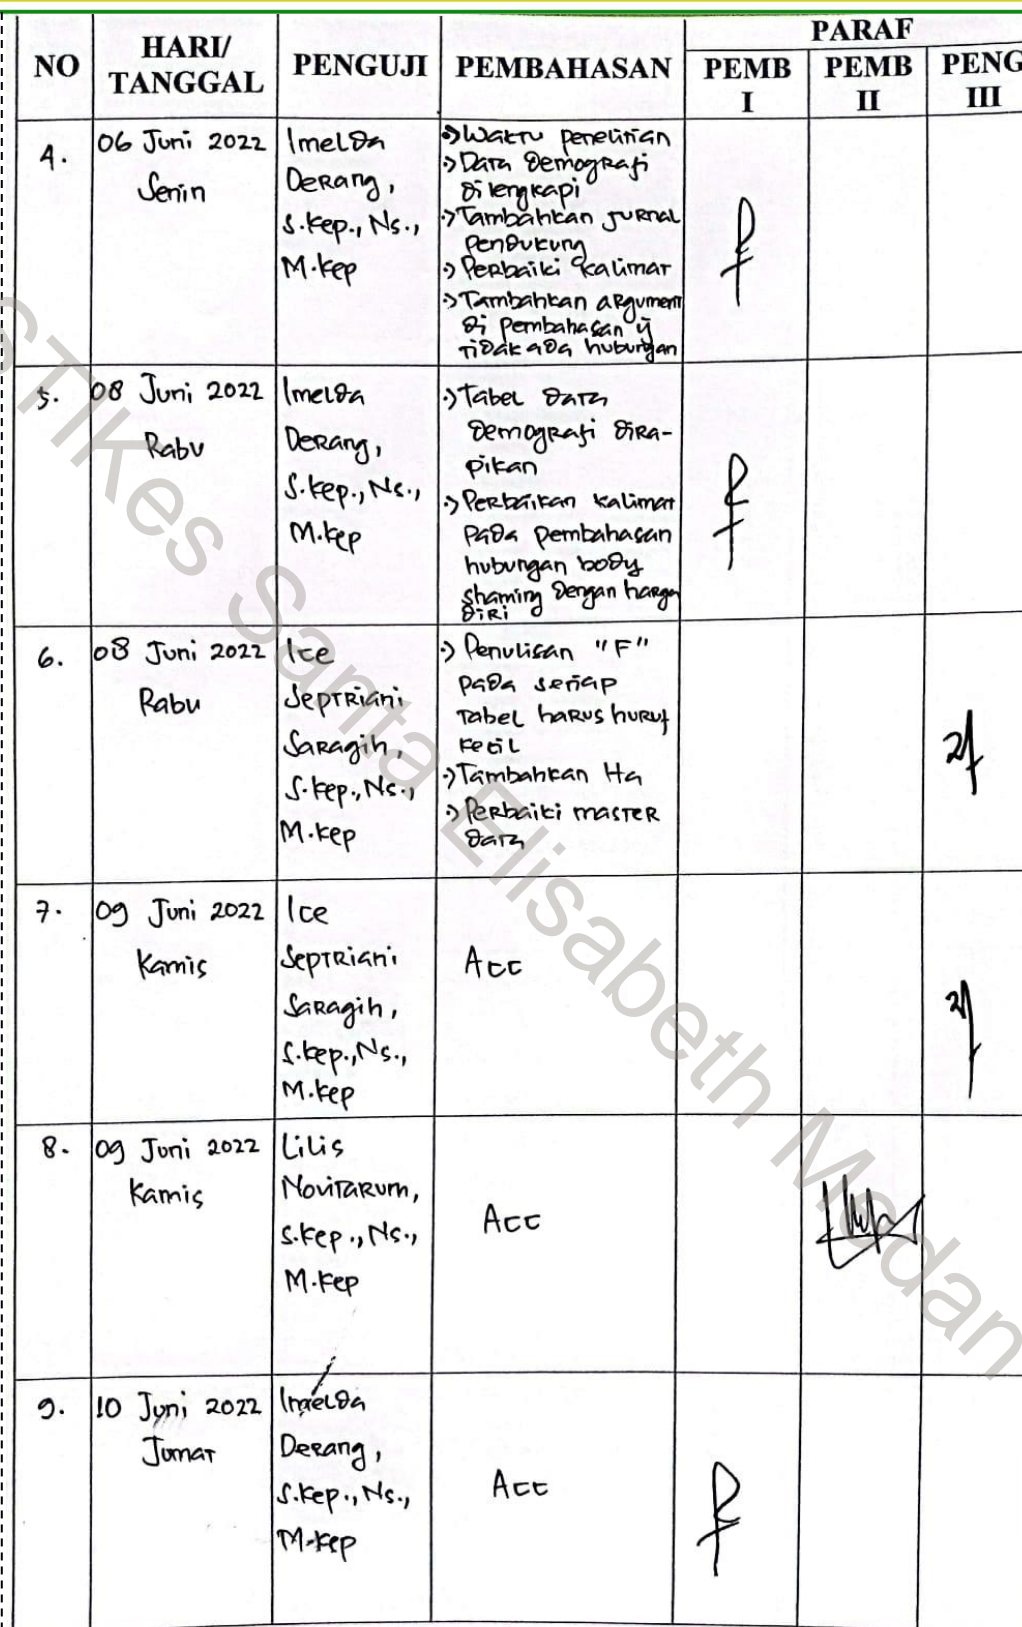 NO
HARI/
TANGGAL
PENGUJI
PEMBAHASAN
PARAF
PEMB
I
PEMB
II
PENG
III
4.
06 Juni 2022
Senin
Imelda
Derang,
S.Kep., Ns.,
M.Kep
Waktu penelitian
Data demografi
dilengkapi
Tambahkan jurnal
pendukung
Perbaiki kalimat
Tambahkan argument
di pembahasan yg
tidak ada hubungan
5.
08 Juni 2022
Rabu
Imelda
Derang,
S.Kep., Ns.,
M.Kep
Tabel data
demografi dira-
pikan
Perbaikan kalimat
pada pembahasan
hubungan body
shaming dengan harga
diri
6.
08 Juni 2022
Rabu
Ice
Septriani
Saragih,
S.Kep., Ns.,
M.Kep
Penulisan "F"
pada setiap
tabel harus huruf
kecil
Tambahkan Ha
Perbaiki master
data
7.
09 Juni 2022
Kamis
Ice
Septriani
Saragih,
S.Kep., Ns.,
M.Kep
Acc
8.
09 Juni 2022
Kamis
Lilis
Novitarum,
S.Kep., Ns.,
M.Kep
Acc
9.
10 Juni 2022
Jumat
Imelda
Derang,
S.Kep., Ns.,
M.Kep
Acc
STIKes Santa Elisabeth Medan